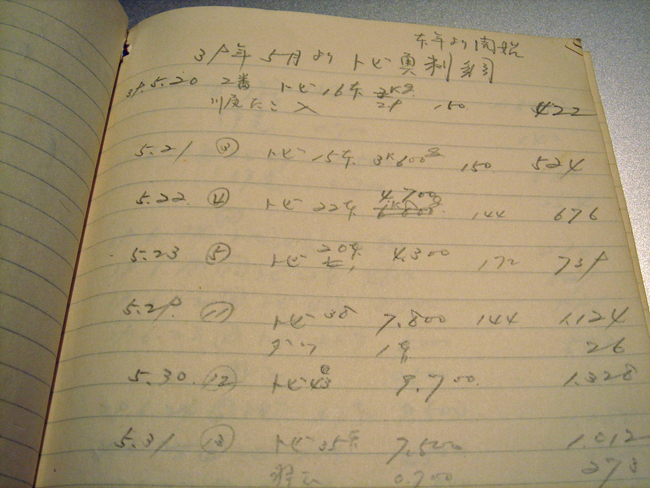 本年より開始
39年5月より トビ魚刺網
39.5.20 2番 トビ16本 2K9 150 422
5.21 ③ トビ15本 3K600g 150 524
4.700g
5.22 ④ トビ22本 144 676
5.23 ⑤ トビ 20本 4.300 172 739
5.29 ⑪ トビ38 7.800 144 1.124
19 26
5.30 ⑫ トビ43 9.700 1.328
5.31 ⑬ トビ35本 7.500 1.012
0.700 273